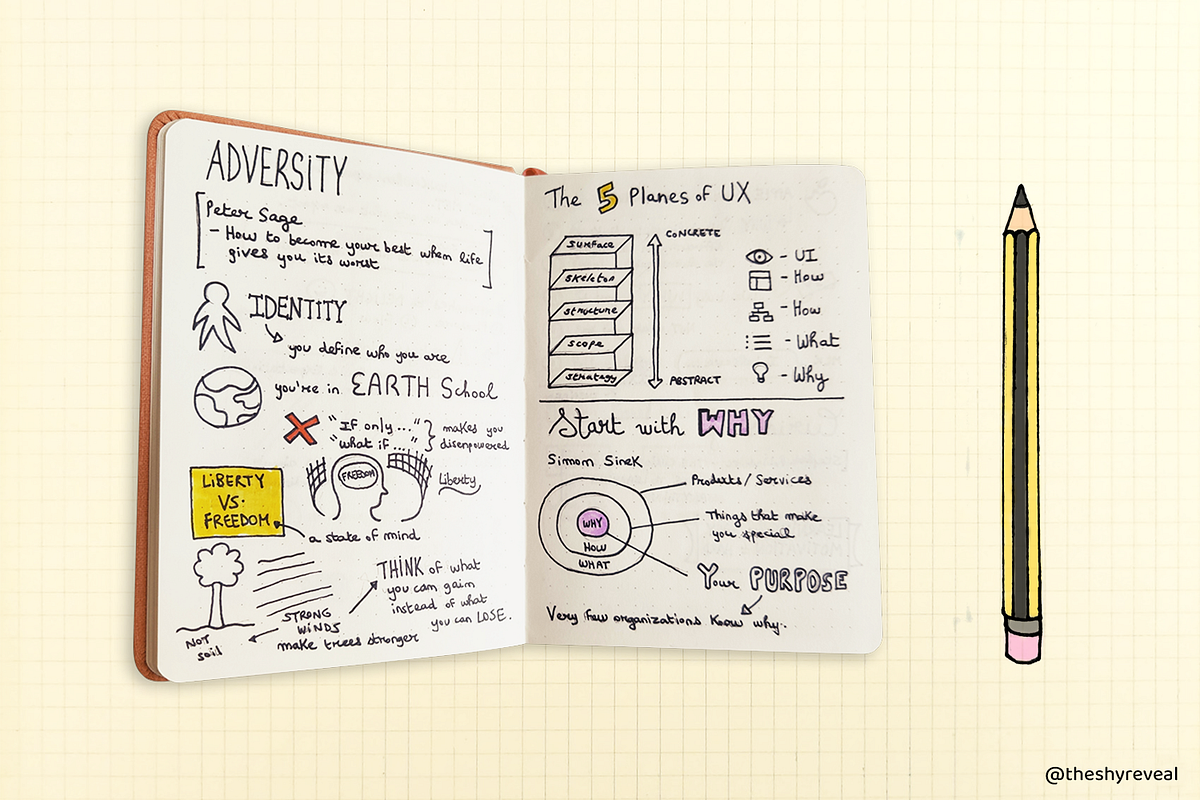 ADVERSITY
Peter Sage
- How to become your best when life
gives you its worst
IDENTITY
you define who you are
you're in EARTH School
"If only ..."
"what if ..."
makes you
disempowered
LIBERTY
VS.
FREEDOM
FREEDOM
Liberty
a state of mind
THINK of what
you can gain
instead of what
you can LOSE.
STRONG
WINDS
make trees stronger
NOT
soil
The 5 Planes of UX
surface
skeleton
structure
scope
strategy
CONCRETE
ABSTRACT
- UI
- How
- How
- What
- Why
Start with WHY
Simon Sinek
WHY
HOW
WHAT
Products / Services
Things that make
you special
Your PURPOSE
Very few organizations know why..
@theshyreveal